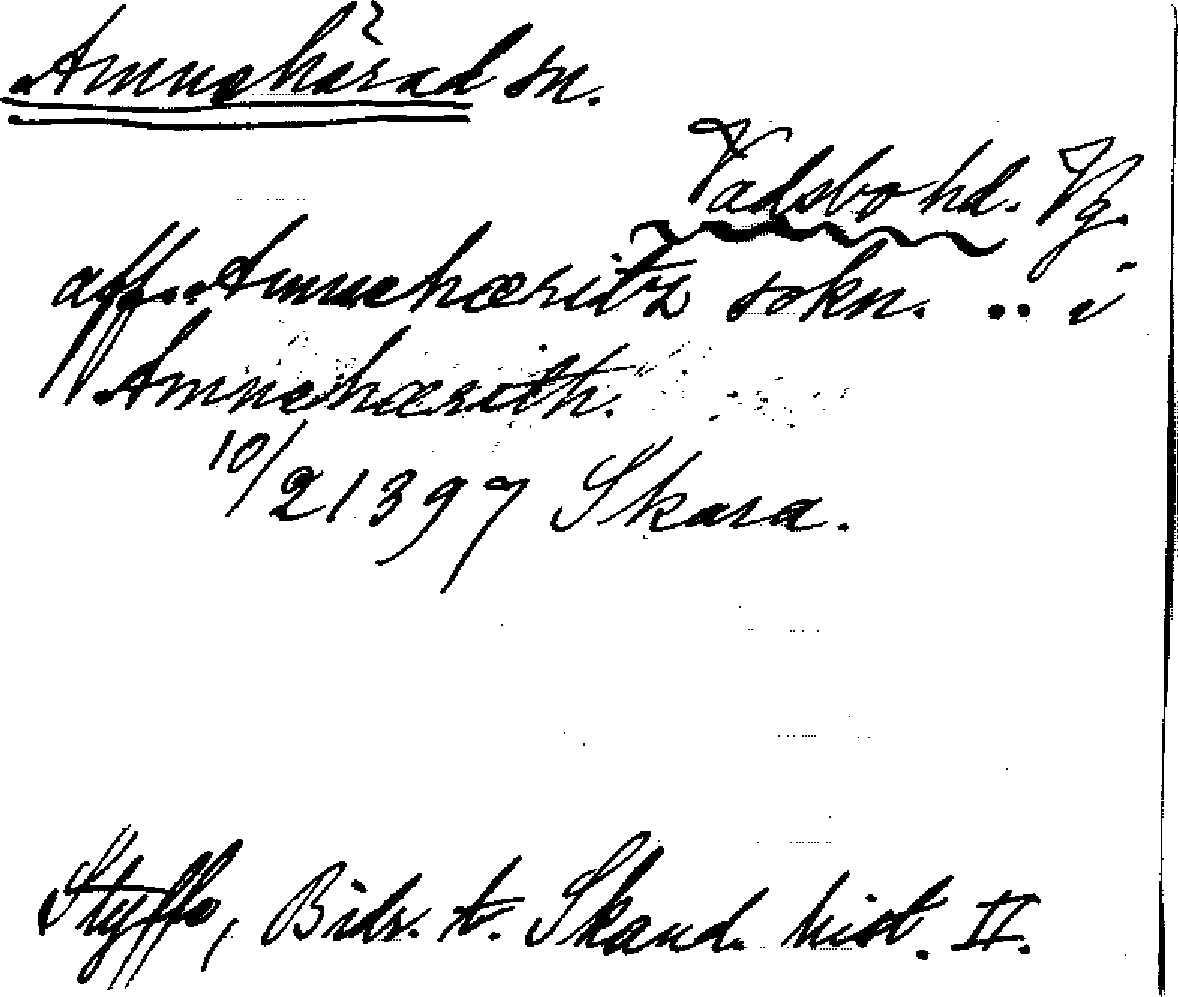 Amnehärad sn.
Vadsbo hd. Vg.
aff Amnehæritz sokn. .. i
Amnehærith.
10/2 1397 Skara.
Styffe, Bidr. t. Skand. hist. II.